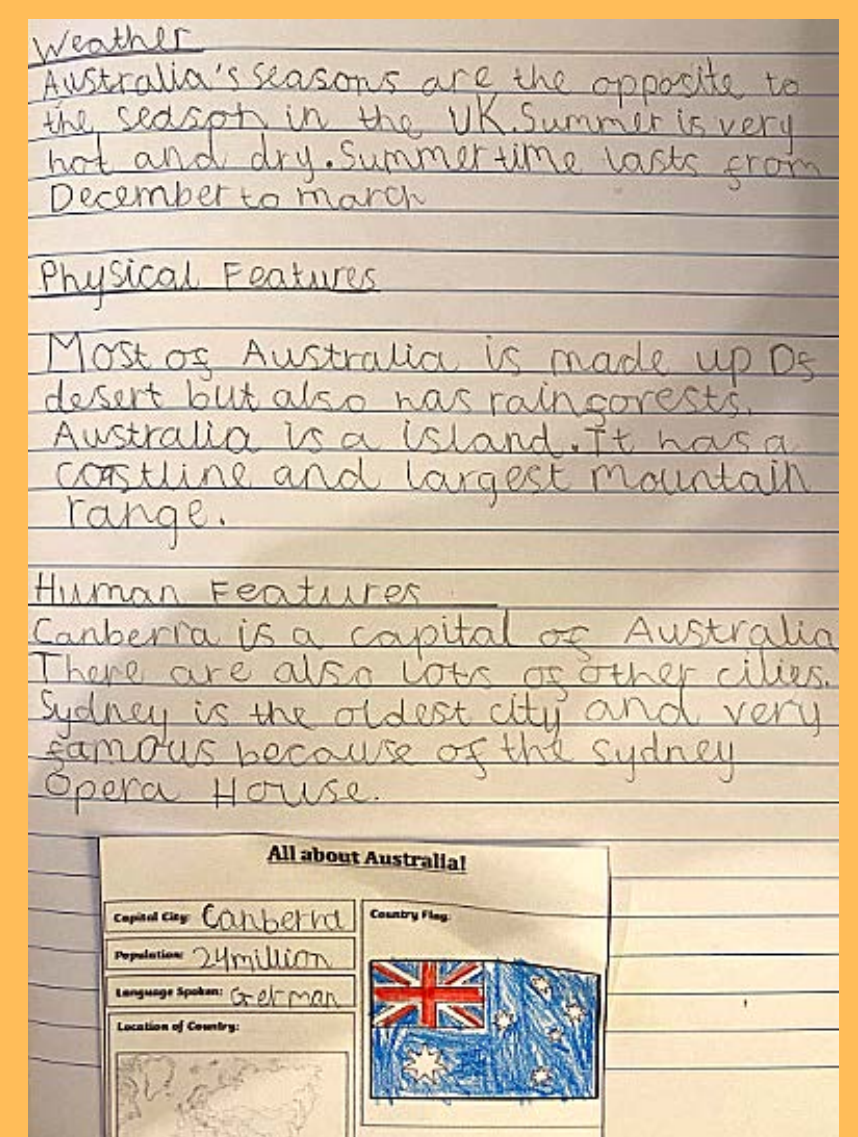 Weather
Australia's seasons are the opposite to
the season in the UK. Summer is very
hot and dry. Summer time lasts from
December to march
Physical Features
Most of Australia is made up Of
desert but also has rainforests.
Australia is a island. It has a
coastline and largest mountain
range.
Human Features
Canberra is a capital of Australia
There are also lots of other cities.
Sydney is the oldest city and very
famous because of the Sydney
Opera House.
All about Australia!
Capital City: Canberra
Country Flag:
Population: 24 million
Language Spoken: German
Location of Country: